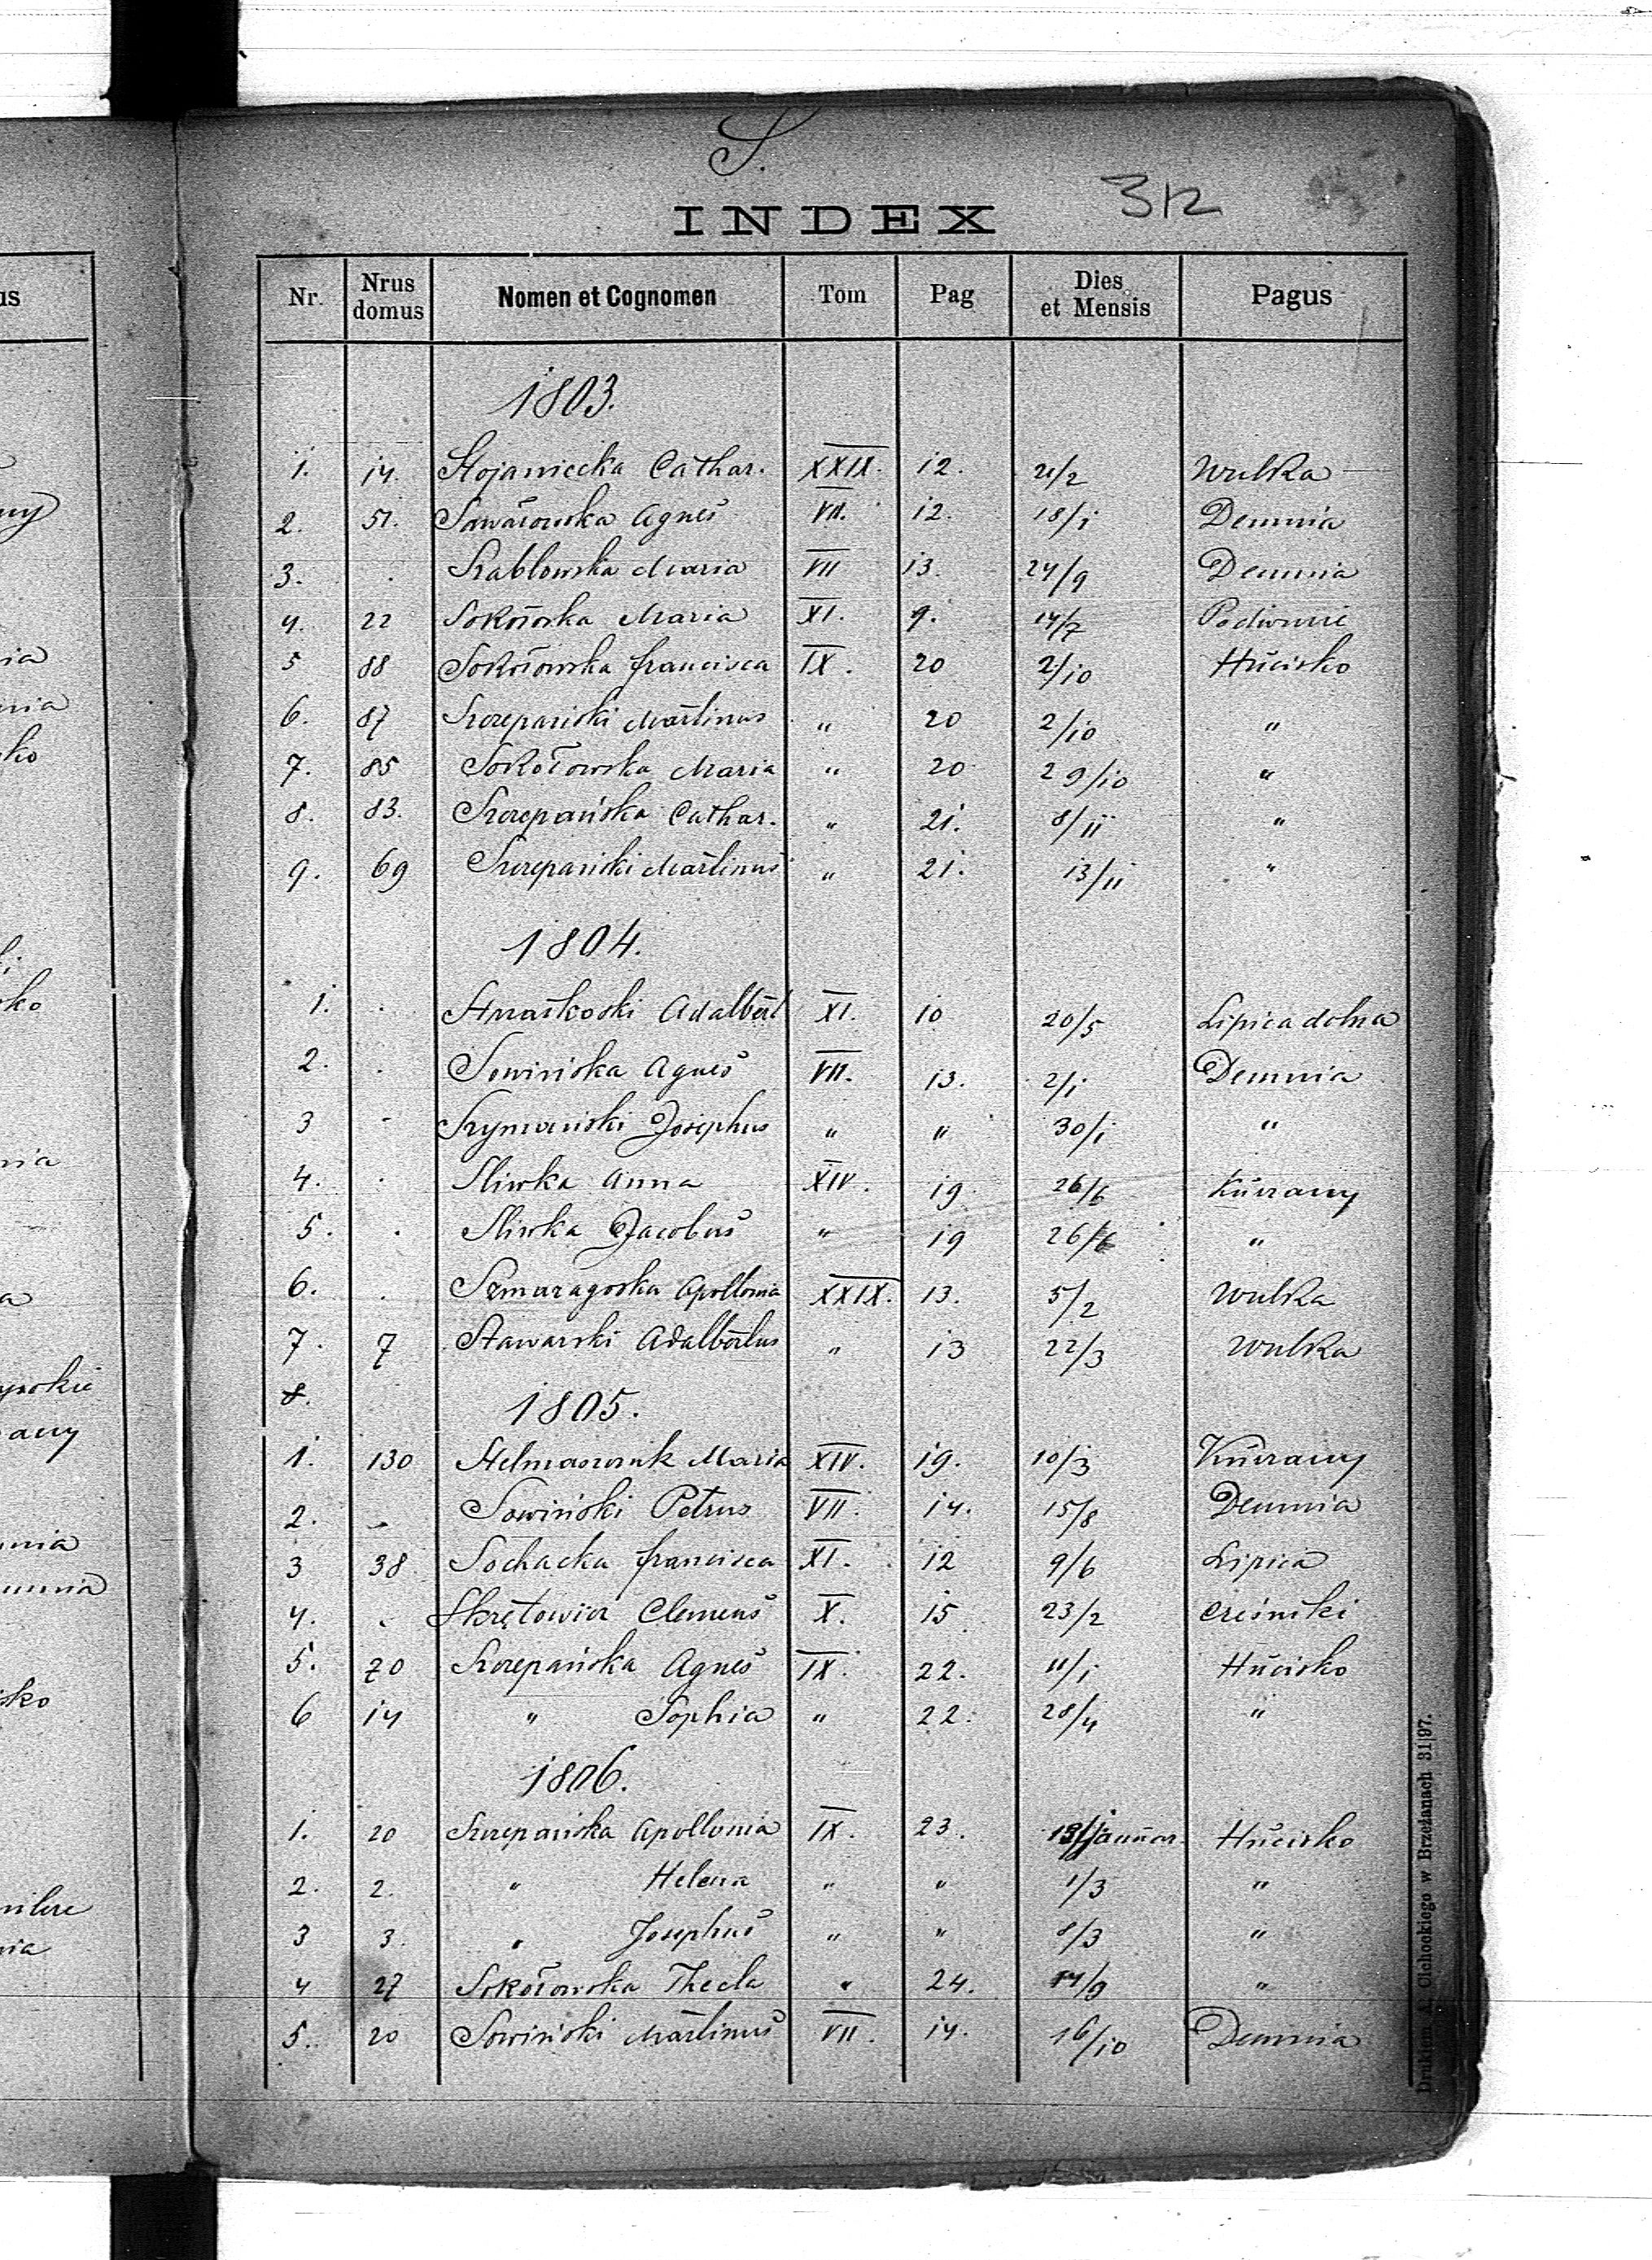 S.
INDEX 312
Nr. Nrus domus Nomen et Cognomen Tom Pag Dies et Mensis Pagus
1803.
1. 14. Stojaniecka Cathar. XXIX. 12. 21/2 Wulka
2. 51. Sawarowska Agnes VII. 12. 18/1 Demnia
3. . Szablowska Maria VII 13. 24/9 Demnia
4. 22 Sokołoska Maria XI. 9. 14/7
5 88 Sokołowska francisca IX. 20 2/10 Hucisko
6. 87 Szczepański Martinus „ 20 2/10 „
7. 85 Sokołowska Maria „ 20 29/10 „
8. 83. Szczepańska Cathar. „ 21. 8/11 „
9. 69 Szczepański Martinus „ 21. 13/11 „
1804.
1. . Adalbert XI. 10 20/5 Lipica dolna
2. . Sowińska Agnes VII. 13. 2/1 Demnia
3 - Szymański Josephus „ „ 30/1 „
4. . Sliwka Anna XIV. 19. 26/6 Kurzany
5. . Sliwka Jacobus „ 19 26/6 „
6. . Szmaragoska Apollonia XXIX. 13. 5/2 Wulka
7. 7 Stawarski Adalbertus „ 13 22/3 Wulka
8. 1805.
1. 130 Stelmaszczuk Maria XIV. 19. 10/3 Kurzany
2. - Sowiński Petrus VII. 14. 15/8 Demnia
3 38 Sochacka francisca XI. 12 9/6 Lipica
4. . Skrętowicz Clemens X. 15 23/2 Cześniki
5. 70 Szczepańska Agnes IX. 22. 11/1 Hucisko
6 14 „ Sophia „ 22. 28/4 „
1806.
1. 20 Szczepańska Apollonia IX. 23. 13/Januar. Hucisko
2. 2. „ Helena „ „ 1/3 „
3 3. „ Josephus „ „ 8/3 „
4 27 Sokołowska Thecla „ 24. 14/9 „
5. 20 Sowiński Martinus VII. 14. 16/10 Demnia
Drukiem A. Cichockiego w Brzeżanach 31|97.